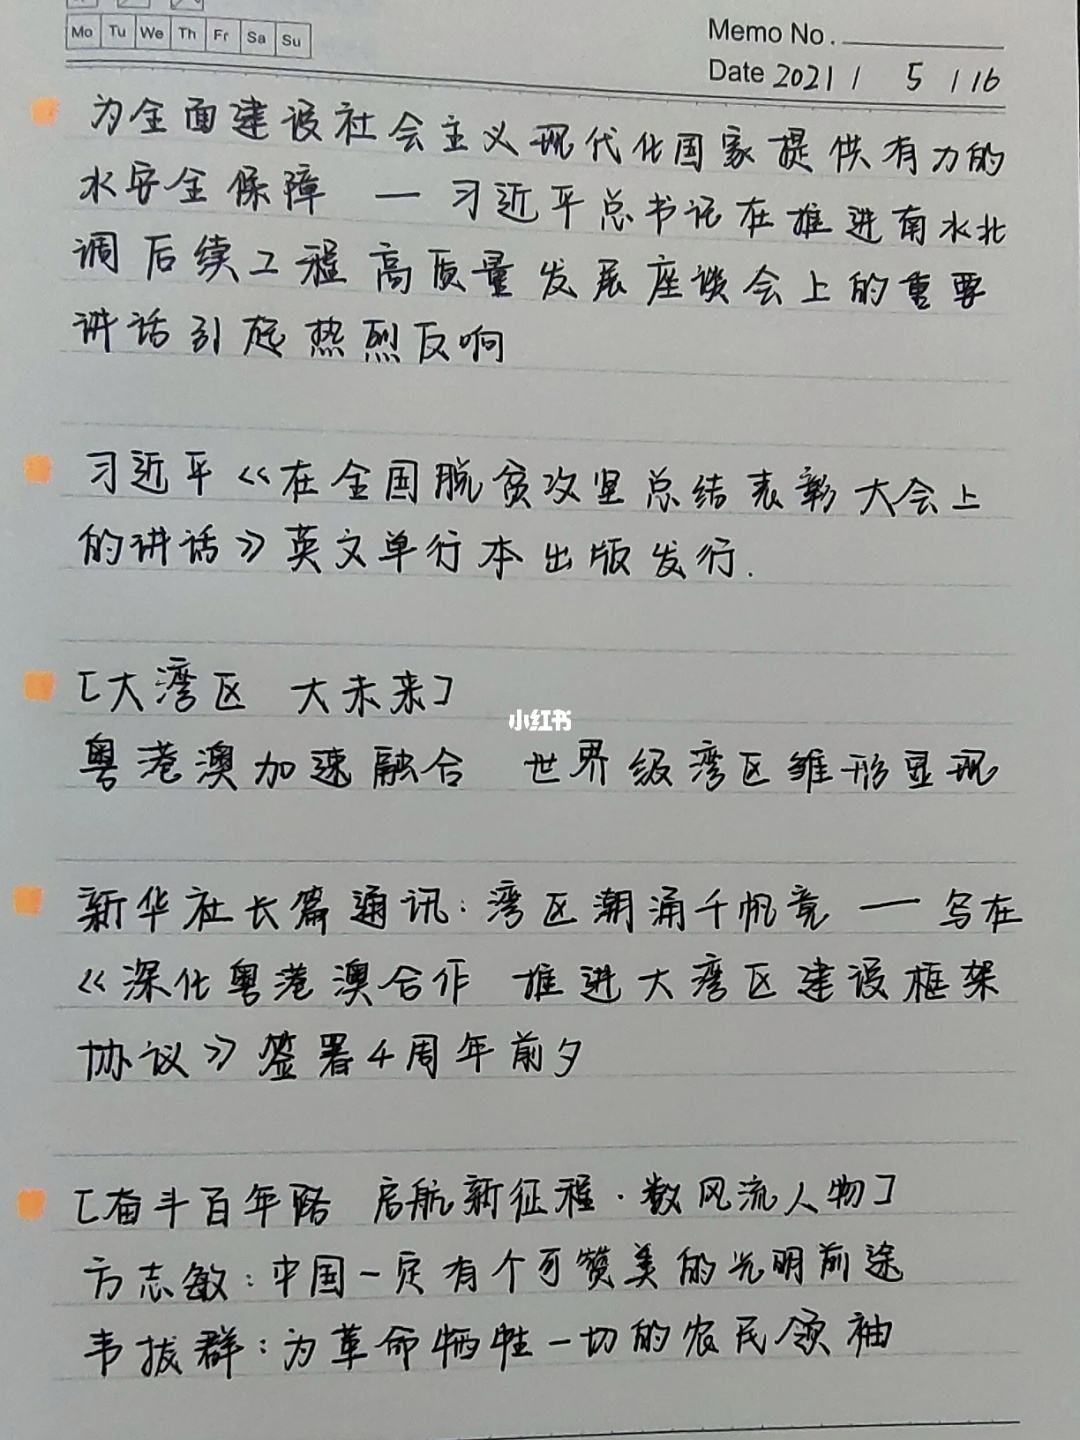 Mo Tu We Th Fr Sa Su
Memo No.
Date 2021 / 5 / 16
为全面建设社会主义现代化国家提供有力的
水安全保障 — 习近平总书记在推进南水北
调后续工程高质量发展座谈会上的重要
讲话引起热烈反响
习近平《在全国脱贫攻坚总结表彰大会上
的讲话》英文单行本出版发行.
[大湾区 大未来]
粤港澳加速融合 世界级湾区雏形显现
小红书
新华社长篇通讯:湾区潮涌千帆竞 — 写在
《深化粤港澳合作 推进大湾区建设框架
协议》签署4周年前夕
[奋斗百年路 启航新征程·数风流人物]
方志敏:中国一定有个可赞美的光明前途
韦拔群:为革命牺牲一切的农民领袖